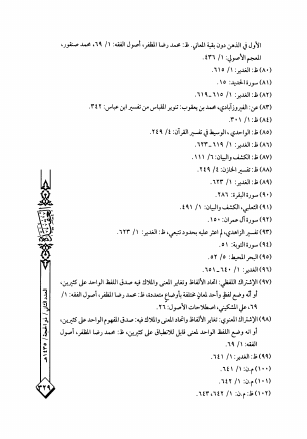 الأول في الذهن دون بقية المعاني. ظ: محمد رضا المظفر، أصول الفقه: ١/ ٦٩، محمد صنقور،
المعجم الأصولي: ١/ ٤٣٦.
(٨٠) ظ: الغدير: ١/ ٦١٥.
(٨١) سورة الحديد: ١٥.
(٨٢) ظ: الغدير: ١/ ٦١٥-٦١٩.
(٨٣) عن: الفيروزآبادي، محمد بن يعقوب: تنوير المقباس من تفسير ابن عباس: ٣٤٢.
(٨٤) ١/ ٣٠١.
(٨٥) ظ: الواحدي، الوسيط في تفسير القرآن: ٤/ ٢٤٩.
(٨٦) ظ: الغدير: ١/ ٦١٩-٦٢٣.
(٨٧) ظ: الكشف والبيان: ٦/ ١١١.
(٨٨) ظ: تفسير الخازن: ٤/ ٢٤٩.
(٨٩) ظ: الغدير: ١/ ٦٢٣.
(٩٠) سورة البقرة: ٢٨٦.
(٩١) الثعلبي، الكشف والبيان: ١/ ٤٩١.
(٩٢) سورة آل عمران: ١٥٠.
(٩٣) تفسير الزاهدي، لم اعثر عليه بحدود تتبعي، ظ: الغدير: ١/ ٦٢٣.
(٩٤) سورة التوبة: ٥١.
(٩٥) البحر المحيط: ٥/ ٥٢.
(٩٦) الغدير: ١/ ٦٤٠-٦٥١.
(٩٧) الإشتراك اللفظي: اتحاد الألفاظ وتغاير المعنى والملاك فيه صدق اللفظ الواحد على كثيرين،
أو أنّه وضع لفظ واحد لمعانٍ مختلفة بأوضاع متعددة، ظ: محمد رضا المظفر، أصول الفقه: ١/
٦٩، علي المشكيني، اصطلاحات الأصول: ٢٦.
(٩٨) الإشتراك المعنوي: تغاير الألفاظ واتحاد المعنى والملاك فيه: صدق المفهوم الواحد على كثيرين،
أو انه وضع اللفظ الواحد لمعنى قابل للانطباق على كثيرين، ظ: محمد رضا المظفر، أصول
الفقه: ١/ ٦٩.
(٩٩) ظ: الغدير: ١/ ٦٤١.
(١٠٠) م.ن: ١/ ٦٤١.
(١٠١) م.ن: ١/ ٦٤٢.
(١٠٢) ظ: م.ن: ١/ ٦٤٢، ٦٤٣.
العدد الثاني / ذو الحجة / ١٤٣٥هـ
٣٢٩